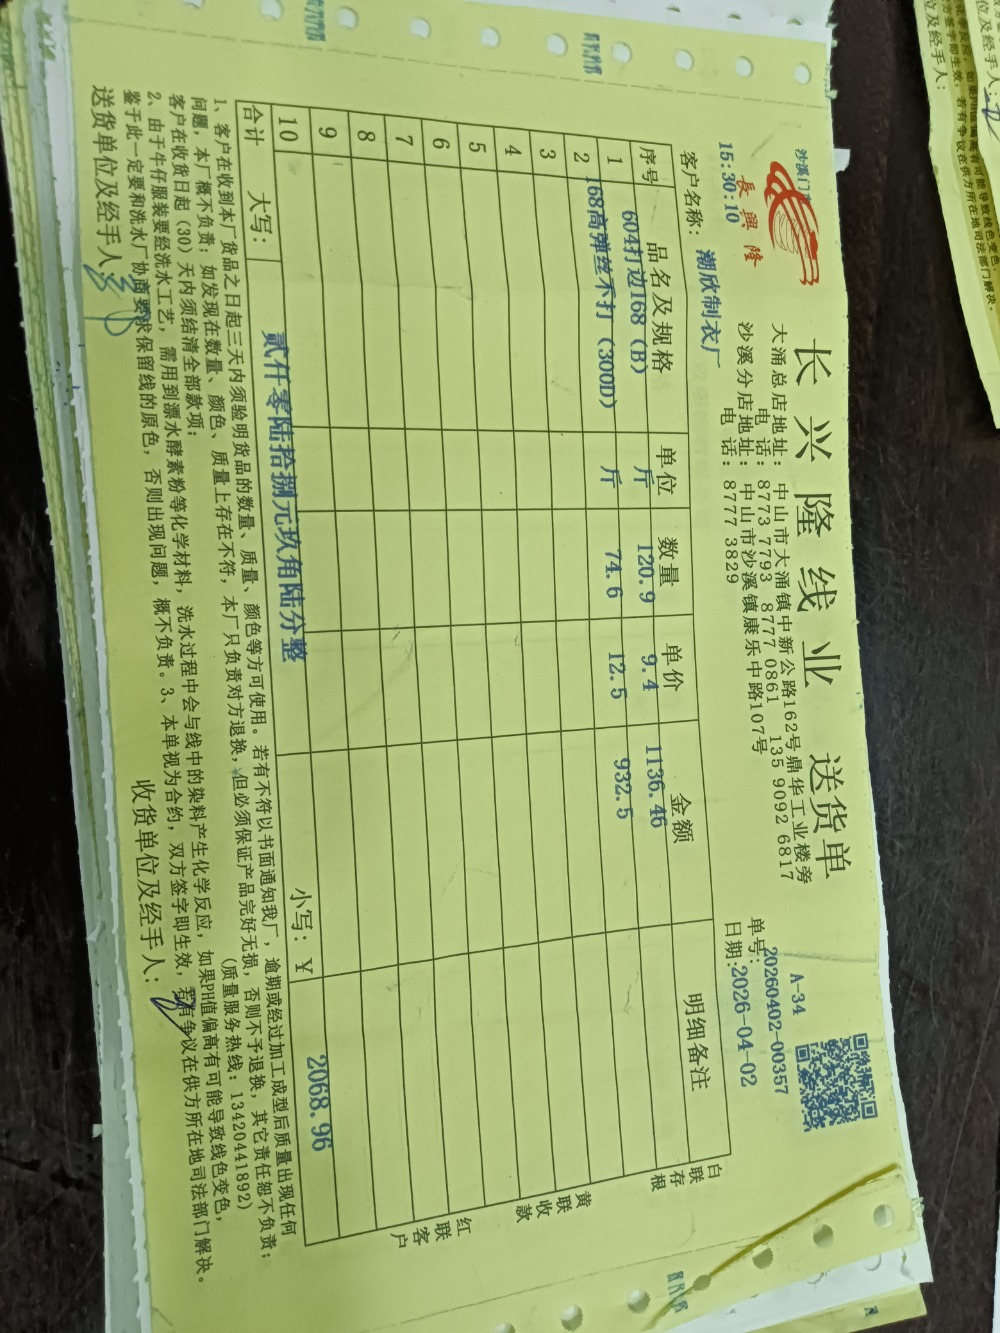 沙溪门市
長興隆
长兴隆线业 送货单
大涌总店地址：中山市大涌镇中新公路162号鼎华工业楼旁
电 话：8773 7793 8777 0861 135 9092 6817
沙溪分店地址：中山市沙溪镇康乐中路107号
电 话：8777 3829
A-34
单号：20260402-00357
日期：2026-04-02
15:30:10
客户名称：潮欣制衣厂
序号 品名及规格 单位 数量 单价 金额 明细备注
1 604打边168（B） 斤 120.9 9.4 1136.46
2 168高弹丝不打（300D） 斤 74.6 12.5 932.5
3
4
5
6
7
8
9
10
合计 大写：贰仟零陆拾捌元玖角陆分整 小写：¥ 2068.96
白联存根
黄联收款
红联客户
1、客户在收到本厂货品之日起三天内须验明货品的数量、质量、颜色等方可使用。若有不符以书面通知我厂，逾期或经过加工成型后质量出现任何
问题，本厂概不负责；如发现在数量、颜色、质量上存在不符，本厂只负责对方退换，但必须保证产品完好无损，否则不予退换，其它责任恕不负责；
客户在收货日起（30）天内须结清全部款项； （质量服务热线：13420441892）
2、由于牛仔服装要经洗水工艺，需用到漂水酵素粉等化学材料，洗水过程中会与线中的染料产生化学反应，如果PH值偏高有可能导致线色变色，
鉴于此一定要和洗水厂协商要求保留线的原色，否则出现问题，概不负责。3、本单视为合约，双方签字即生效，若有争议在供方所在地司法部门解决。
送货单位及经手人：
收货单位及经手人：
如果PH值偏高有可能导致线色变色，
方签字即生效，若有争议在供方所在地司法部门解决。
位及经手人：